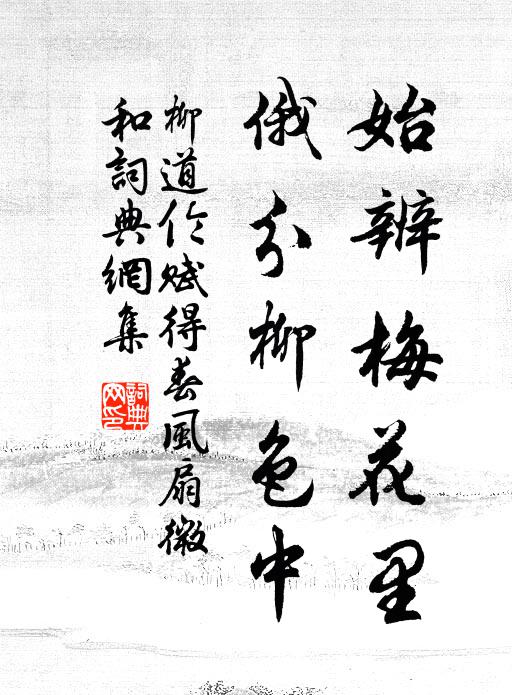 始辨梅花里
俄分柳色中
柳道伦赋得春风扇微
和詞典網集
詞典
网印